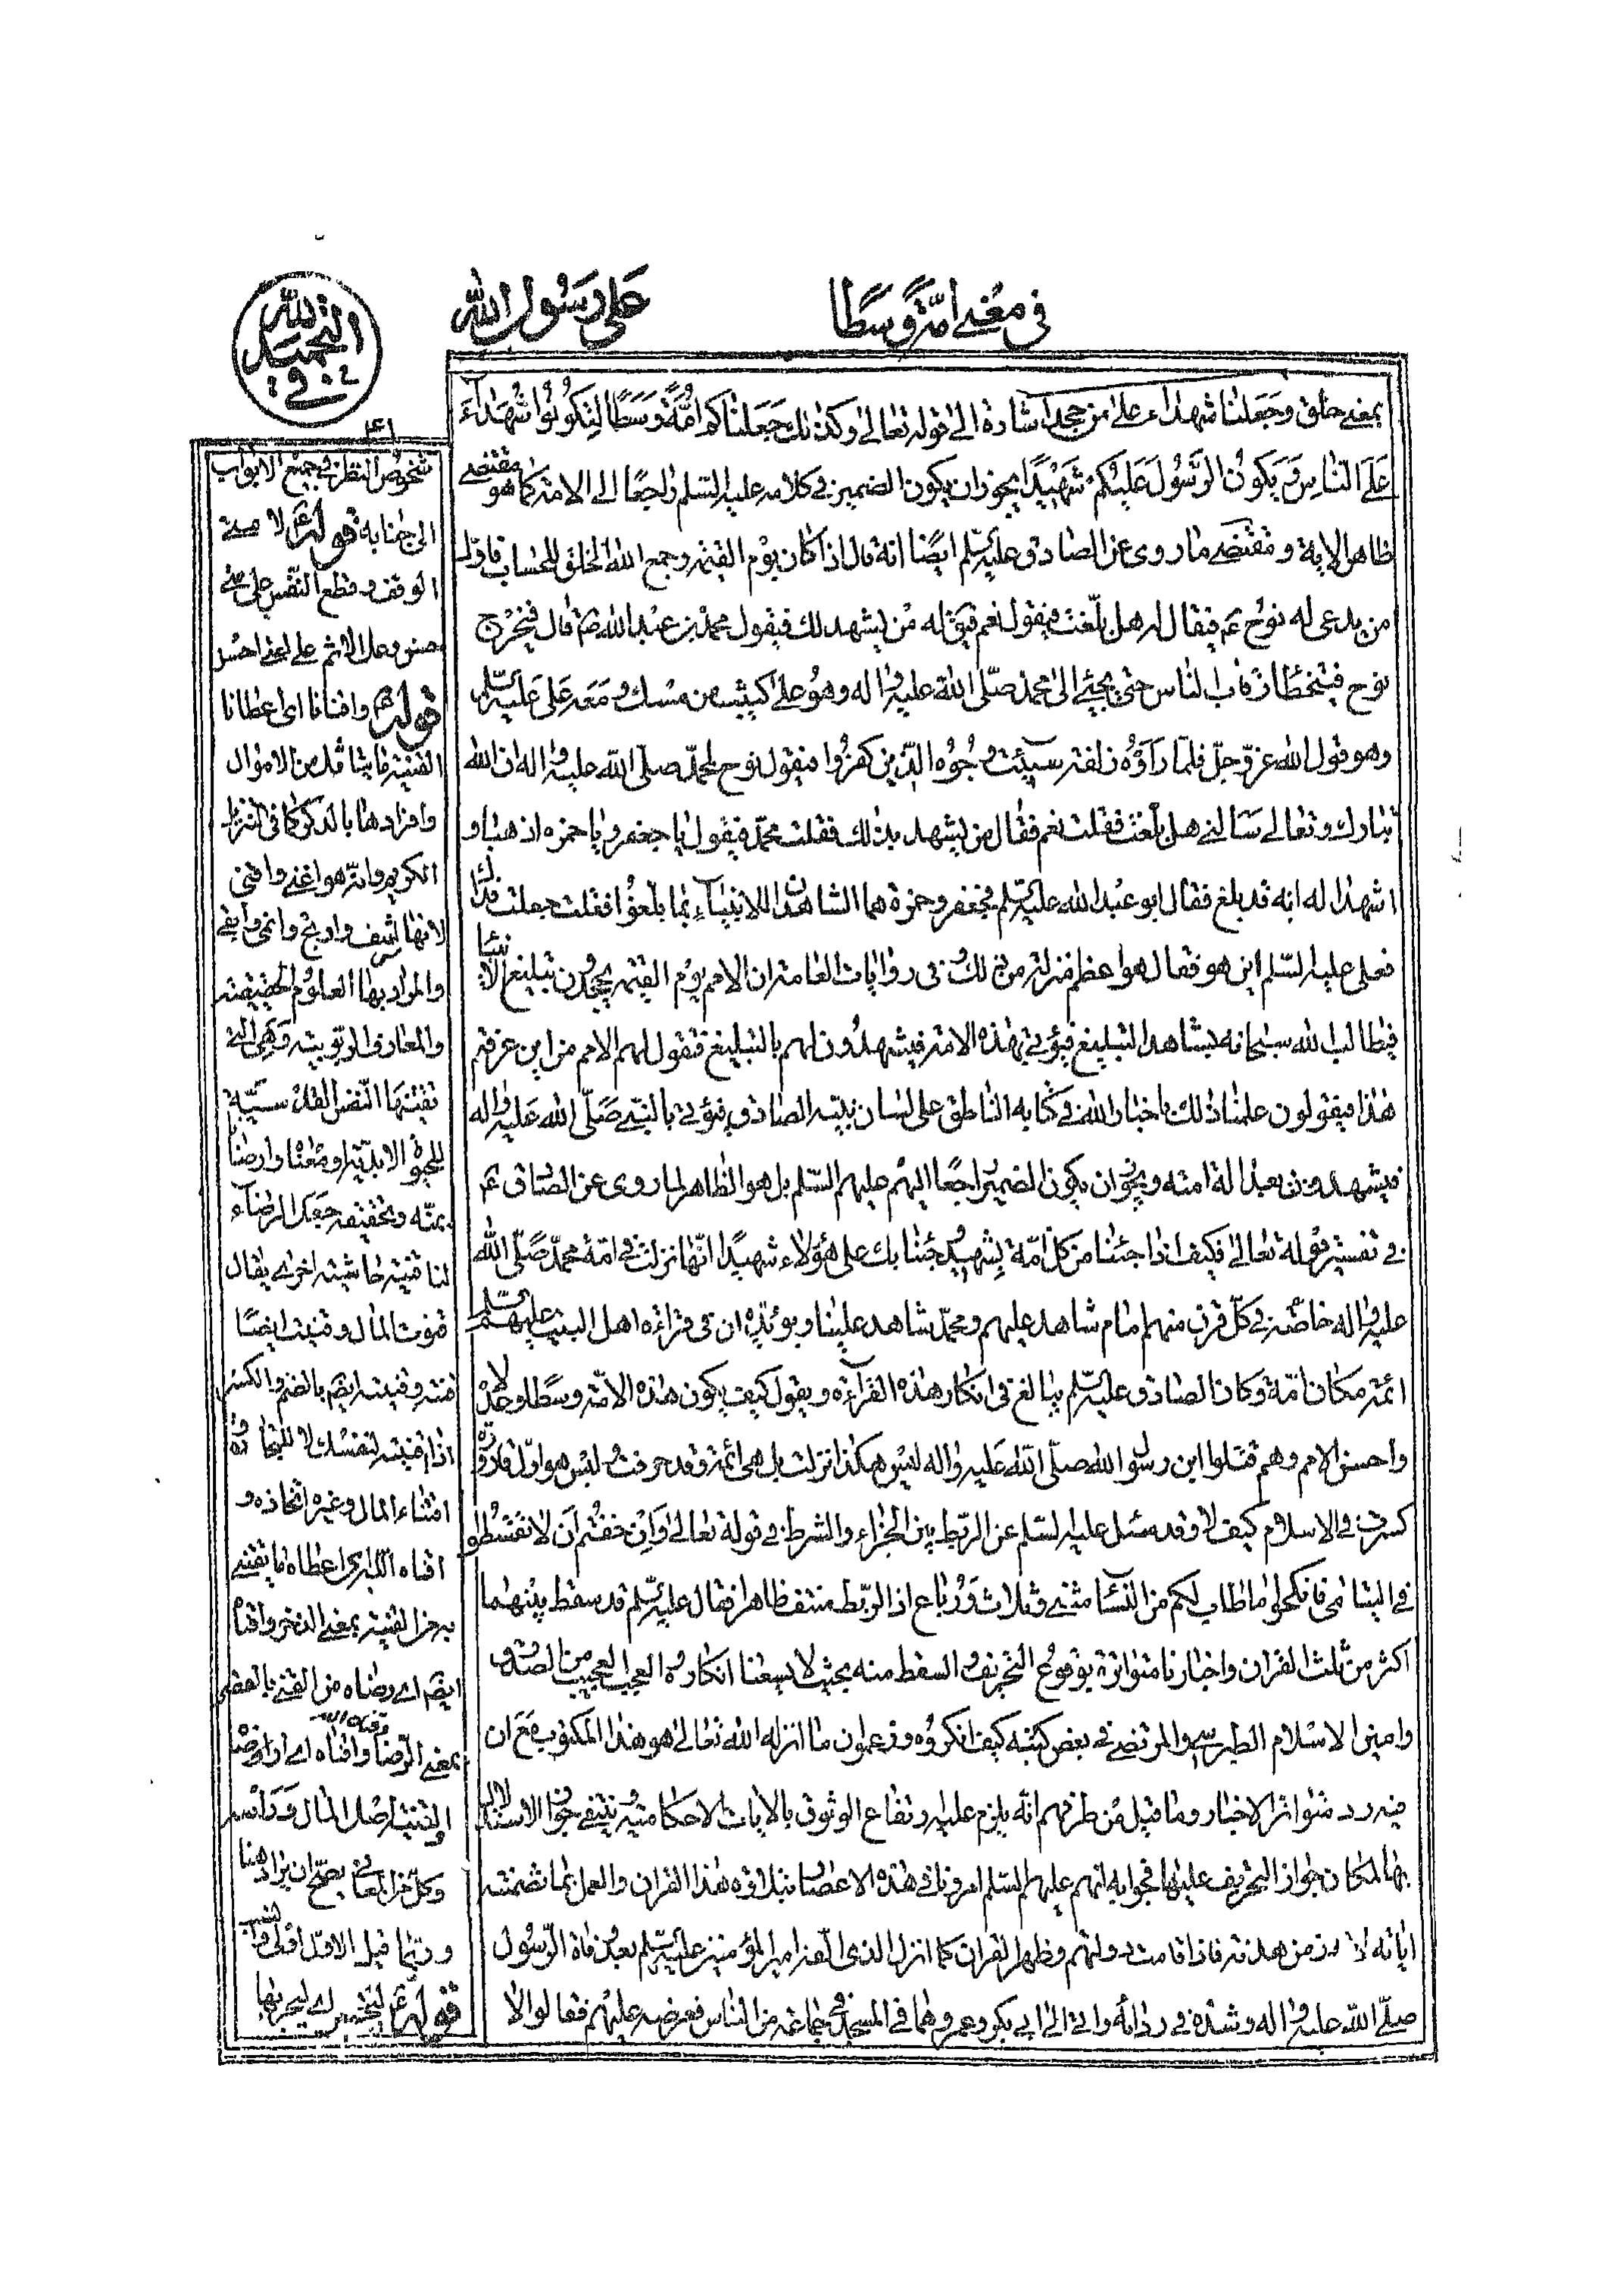 في معنى امة وسطا
على رسول الله
التحميد لله
بمعنى خلق وجعلنا شهداء على من جحد اشارة الى قوله تعالى وكذلك جعلناكم امة وسطا لتكونوا شهداء
على الناس ويكون الرسول عليكم شهيدا يجوز ان يكون الضمير في كلامه عليه السلم راجعا الى الامة كما هو مقتضى
ظاهر الاية ومقتضى ما روى عن الصادق عليه السلم ايضا انه قال اذا كان يوم القيمة وجمع الله الخلق للحساب فاول
من يدعى له نوح ع فيقال له هل بلغت فيقول نعم فيق له من يشهد لك فيقول محمد بن عبد الله ص قال فيخرج
نوح فيتخطا رقاب الناس حتى يجيئ الى محمد صلى الله عليه واله وهو على كثيب من مسك ومعه على عليه السلم
وهو قول الله عز وجل فلما رآوه زلفة سيئت وجوه الذين كفروا فيقول نوح لمحمد صلى الله عليه واله ان الله
تبارك وتعالى سألني هل بلغت فقلت نعم فقال من يشهد بذلك فقلت محمد فيقول يا جعفر ويا حمزه اذهبا و
اشهدا له انه قد بلغ فقال ابو عبد الله عليه السلم فجعفر وحمزة هما الشاهدان للانبياء بما بلغوا فقلت جعلت فداك
فعلى عليه السلم اين هو فقال هو اعظم منزلة من ذلك وفي روايات العامة ان الامم يوم القيمة يجحدون تبليغ الانبيا
فيطالب الله سبحانه بشاهد التبليغ فيؤتى بهذه الامة فيشهدون لهم بالتبليغ فتقول لهم الامم من اين عرفتم
هذا فيقولون علمنا ذلك باخبار الله في كتابه الناطق على لسان نبيه الصادق فيؤتى بالنبي صلى الله عليه واله
فيشهدون بعدالة امته ويجوز ان يكون الضمير راجعا اليهم عليهم السلم بل هو الظاهر لما روى عن الصادق ع
في تفسير قوله تعالى فكيف اذا جئنا من كل امة بشهيد وجئنا بك على هؤلاء شهيدا انها نزلت في امة محمد صلى الله
عليه واله خاصة في كل قرن منهم امام شاهد عليهم ومحمد شاهد علينا ويؤيده ان في قراءه اهل البيت عليهم السلم
ائمة مكان امة وكان الصادق عليه السلم يبالغ في انكار هذه القراءة ويقول كيف يكون هذه الامة وسطا وعدلا
واحسن الامم وهم قتلوا ابن رسول الله صلى الله عليه واله ليس هكذا نزلت بل هي ائمة وقد حرفت وليس هو اول قارورة
كسرت في الاسلام كيف لا وقد سئل عليه السلم عن الربط بين الجزاء والشرط في قوله تعالى وان خفتم ان لا تقسطوا
في اليتامى فانكحوا ما طاب لكم من النسا مثنى وثلاث ورباع اذ الربط منتف ظاهرا فقال عليه السلم قد سقط بينهما
اكثر من ثلث القران واخبارنا متواترة بوقوع التحريف والسقط منه بحيث لا يسعنا انكاره والعجب العجيب من الصدوق
وامين الاسلام الطبرسي والمرتضى في بعض كتبه كيف انكروه وزعموا ان ما انزله الله تعالى هو هذا المكتوب مع ان
فيه رد متواتر الاخبار وما قيل من طرفهم انه يلزم عليه ارتفاع الوثوق بالايات الاحكامية وينتفى جواز الاستدلال
بها لمكان جواز التحريف عليها فجوابه انهم عليهم السلم امرونا في هذه الاعصار بتلاوة هذا القران والعمل بما تضمنته
اياته لانه زمن هدنة فاذا قامت دولتهم وظهر القران كما انزل الذى الفه امير المؤمنين عليه السلم بعد وفاة الرسول
صلى الله عليه واله وشده في ردائه واتى الى ابي بكر وعمر وهما في المسجد في جماعة من الناس فعرضه عليهم فقالوا لا
شخوص النظر في جميع الابواب
الى جنابه قوله ع لا
الوقف وقطع النفس على
حسن وعلى الاثم على لغة احسن
قوله واقنانا اى اعطانا
القنية ما يتاثل من الاموال
وافردها بالذكر كما في التنزيل
الكريم وانه هو اغنى واقنى
لانها اشف واربح وانمى وابقى
والمراد بها العلوم الحقيقية
والمعارف الربوبية وهي التي
تقتنيها النفس القدسية
للحيوة الابدية او معناه وارضانا
بمنه وتحقيقه جعل الرضاء
لنا قنية حاشية اخرى يقال
قنوت المال وقنيت ايضا
قنية وقنية ايضم بالضم والكسر
اذا اقتنيته لنفسك لا للتجارة و
اقتناء المال وغيره اتخاذه و
اقناه الله اى اعطاه ما يقتنى
به من القنية بمعنى الذخر واقناه
ايضم اى رضاه من القنى بالقصر
بمعنى الرضا واقناه اى ارضاه
القنية اصل المال وراس
وكل من المعاني يصح ان يراد هنا
وربما قيل الاول اولى وانسب
قوله ع ليجيز اى ليجريها